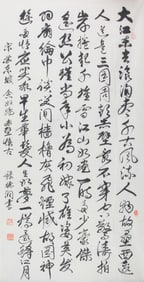 大江東去浪淘盡千古風流人物故壘西邊
人道是三國周郎赤壁亂石穿空驚濤拍
岸捲起千堆雪江山如畫一時多少豪
傑遙想公瑾當年小喬初嫁了雄姿英發
羽扇綸巾談笑間檣櫓灰飛煙滅故國神
遊多情應笑我早生華髮人生如夢一樽還酹江月
宋蘇東坡念奴嬌赤壁懷古 張書